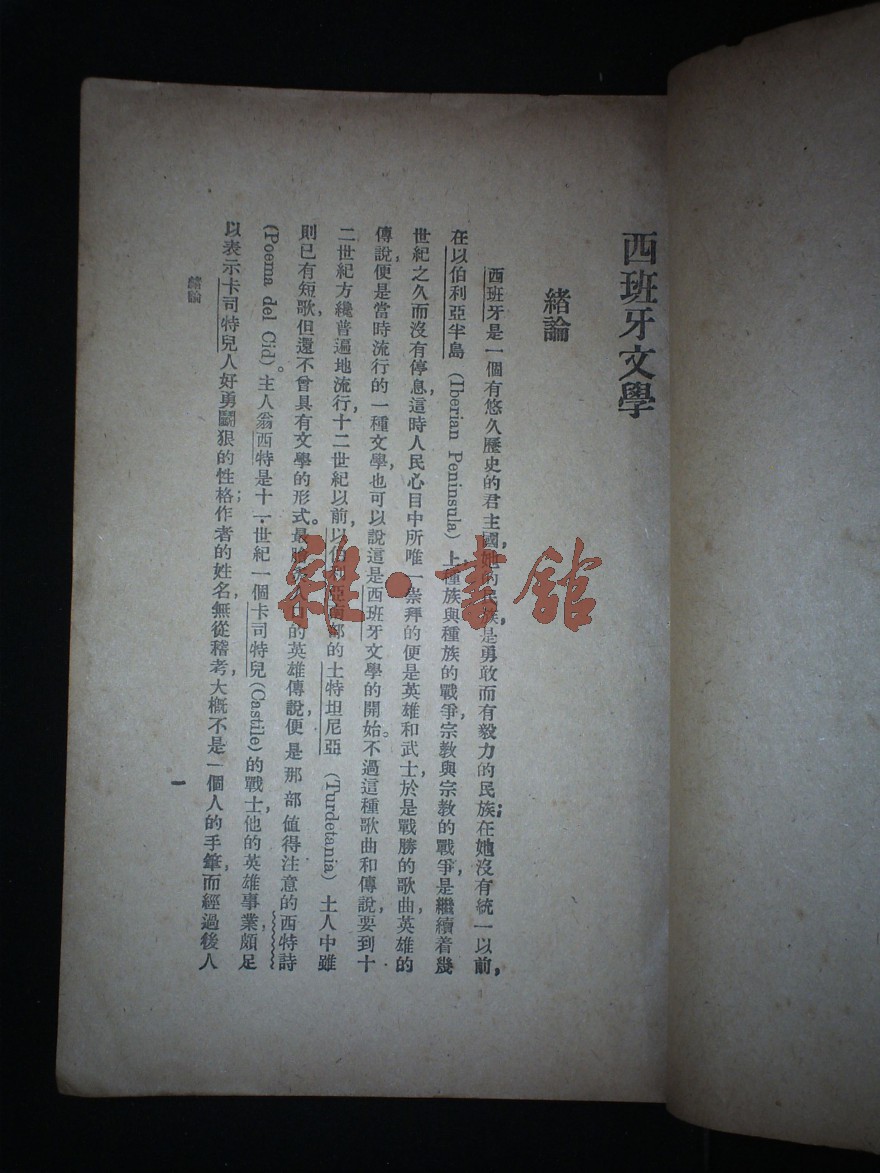 西班牙文學
緒論
西班牙是一個有悠久歷史的君主國，她的民族，是勇敢而有毅力的民族；在她沒有統一以前，
在以伯利亞半島 (Iberian Peninsula) 上種族與種族的戰爭宗教與宗教的戰爭，是繼續着幾
世紀之久而沒有停息，這時人民心目中所唯一崇拜的便是英雄和武士，於是戰勝的歌曲，英雄的
傳說，便是當時流行的一種文學，也可以說這是西班牙文學的開始。不過這種歌曲和傳說，要到十
二世紀方纔普遍地流行，十二世紀以前，以伯利亞南部的土特坦尼亞 (Turdetania) 土人中雖
則已有短歌，但還不曾具有文學的形式。最膾人口的英雄傳說，便是那部值得注意的西特詩
(Poema del Cid)。主人翁西特是十一世紀一個卡司特兒 (Castile) 的戰士，他的英雄事業，頗足
以表示卡司特兒人好勇鬭狠的性格；作者的姓名，無從稽考，大概不是一個人的手筆，而經過後人
緒論
一
雜·書館